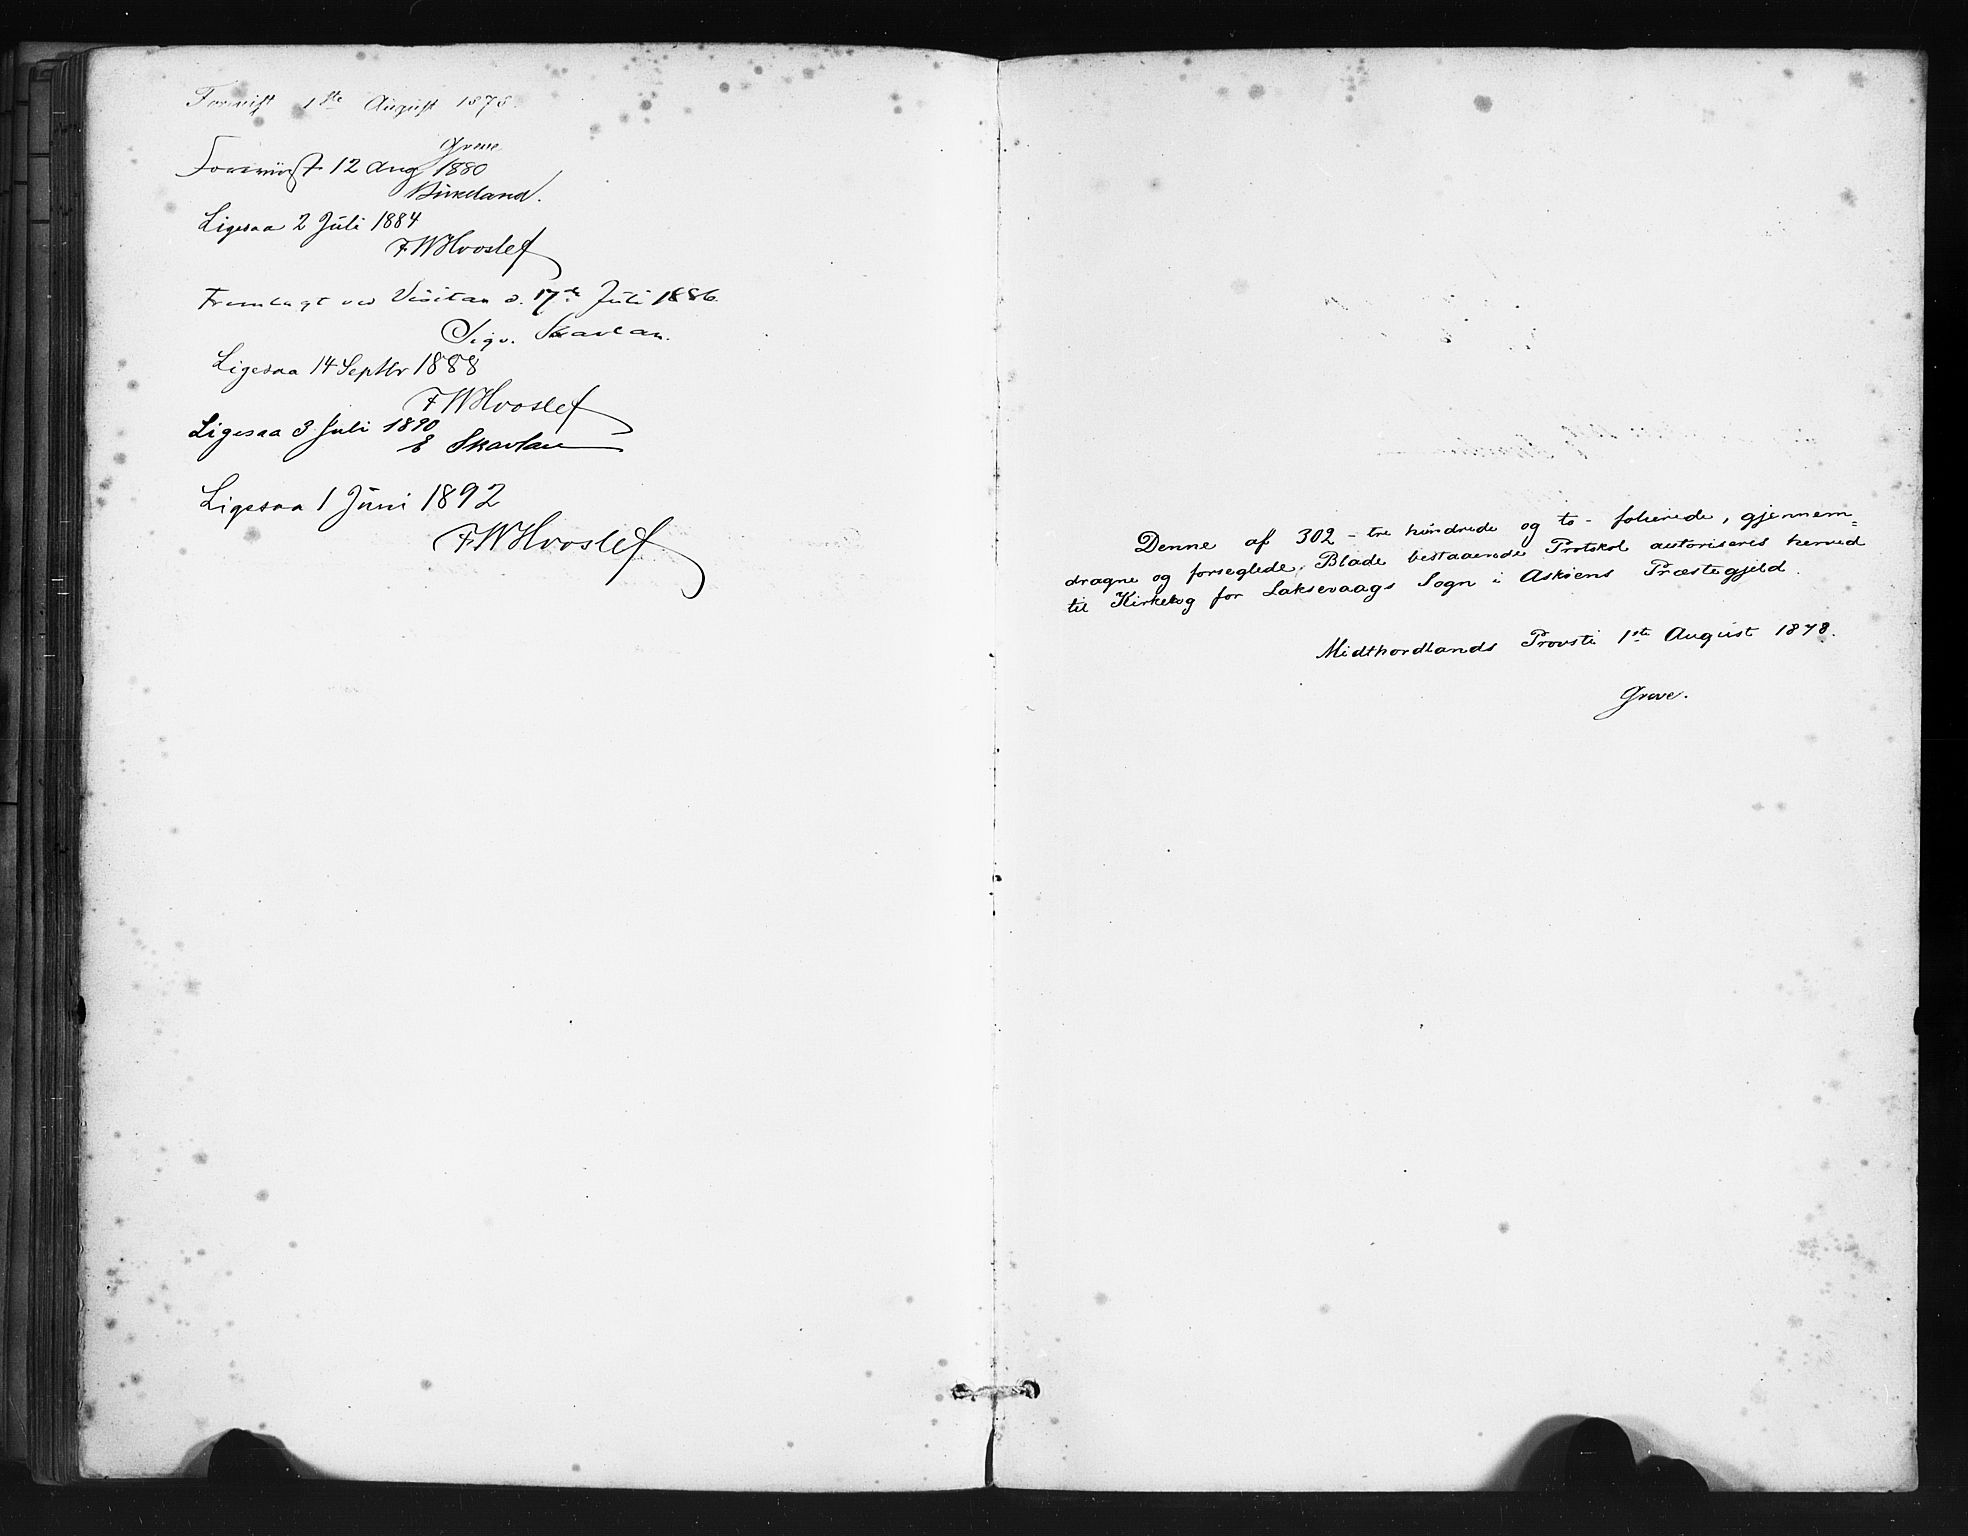 Forevist 1ste August 1878.
Greve
Forevist 12 Aug 1880
Birkeland.
Ligesaa 2 Juli 1884
FWHvoslef
Fremlagt ved Visitas d. 17de Juli 1886.
Sigv. Skavlan.
Ligesaa 14 Septbr 1888
FWHvoslef
Ligesaa 3 Juli 1890
E Skavlan
Ligesaa 1 Juni 1892
FWHvoslef
Denne af 302 - tre hundrede og to - folierede, gjennem=
dragne og forseglede Blade bestaaende Protokol autoriseres herved
til Kirkebog for Laksevaags Sogn i Askøens Præstegjeld.
Midthordlands Provsti 1ste August 1878.
Greve.